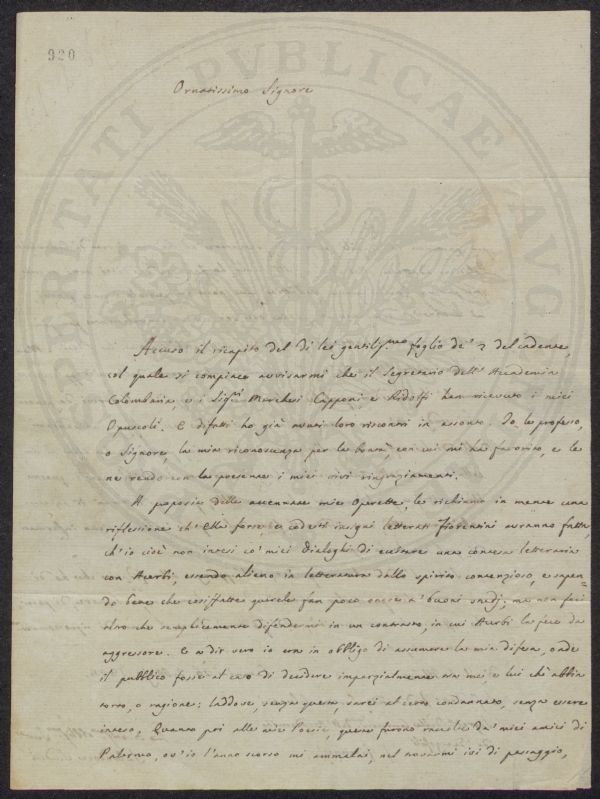 920
PROSPERITATI PVBLICAE AVG
Ornatissimo Signore
Accuso il ricapito del di lei gentilis.mo foglio de' 2 del cadente,
col quale si compiace avvisarmi che il Segretario dell' Accademia
Colombaria, e i Sig.ri Marchesi Capponi e Ridolfi han ricevuto i miei
Opuscoli. E difatti ho già avuti loro riscontri in assunto. Io le professo,
o Signore, la mia riconoscenza per la bontà con cui mi ha favorito, e le
ne rendo con la presente i miei vivi ringraziamenti.
A proposito delle accennate mie Operette, le richiamo in mente una
riflessione ch' Ella forse, e codesti insigni letterati Fiorentini avranno fatta,
ch'io cioè non intesi co' miei Dialoghi di suscitare una contesa letteraria
con Acerbi, essendo alieno in letteratura dallo spirito contenzioso, e sapen-
do bene che cosiffatte querele fan poco onore a' buoni studj; ma non feci
altro che semplicemente difendermi in un contrasto, in cui Acerbi la fece da
aggressore. E a dir vero io era in obbligo di assumere la mia difesa, onde
il pubblico fosse al caso di decidere imparzialmente tra me, e lui chi abbia
torto, o ragione: laddove, senza questo, sarei al certo condannato, senza essere
inteso. Quanto poi alle mie Poesie, queste furono raccolte da' miei amici di
Palermo, ov'io l'anno scorso mi ammalai, nel trovarmi ivi di passaggio,